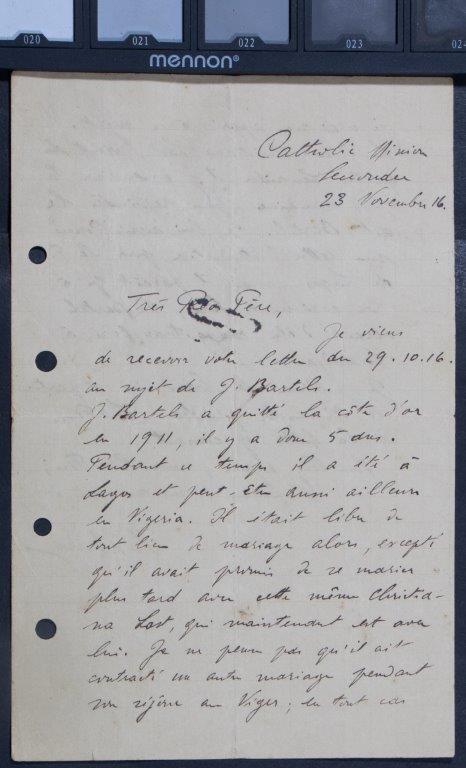 020 021 022 023 02
mennon®
Catholic Mission
23 November 16.
Très Rév Père,
Je viens
de recevoir votre lettre du 29.10.16.
au sujet de J. Bartels.
J. Bartels a quitté la côte d'or
en 1911, il y a donc 5 ans.
Pendant ce temps il a été à
Lagos et peut-être aussi ailleurs
en Nigeria. Il était libre de
tout lien de mariage alors, excepté
qu'il avait promis de se marier
plus tard avec cette même Christia-
na Last, qui maintenant est avec
lui. Je ne pense pas qu'il ait
contracté un autre mariage pendant
son séjour au Niger; en tout cas